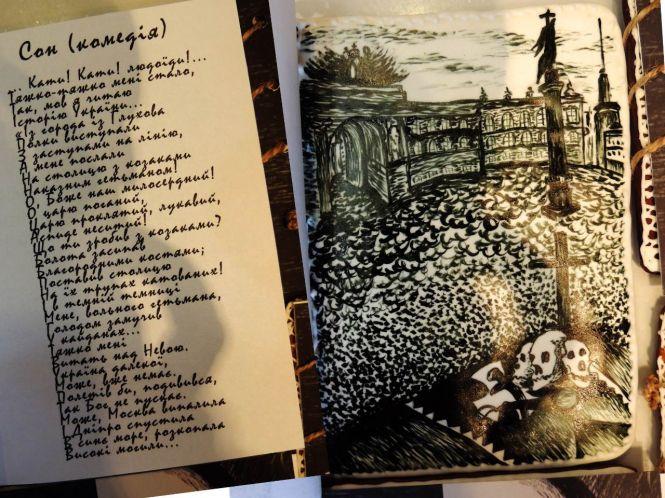 Сон (комедія)
... Кати! Кати! людоїди!...
Тяжко-тяжко мені стало,
Так, мов я читаю
Історію України...
із города із Глухова
Полки виступали
З заступами на лінію,
А мене послали
На столицю з козаками
Наказним гетьманом!
О, Боже наш милосердний!
О, царю поганий,
Царю проклятий, лукавий,
Аспиде неситий!
Що ти зробив з козаками?
Болота засипав
Благородними костями;
Поставив столицю
На їх трупах катованих!
І в темній темниці
Мене, вольного гетьмана,
Голодом замучив
У кайданах...
Тяжко мені
Витать над Невою.
Україна далекої,
Може, вже немає.
Полетів би, подивився,
Так Бог не пускає.
Може, Москва випалила
І Дніпро спустила
В синє море, розкопала
Високі могили...